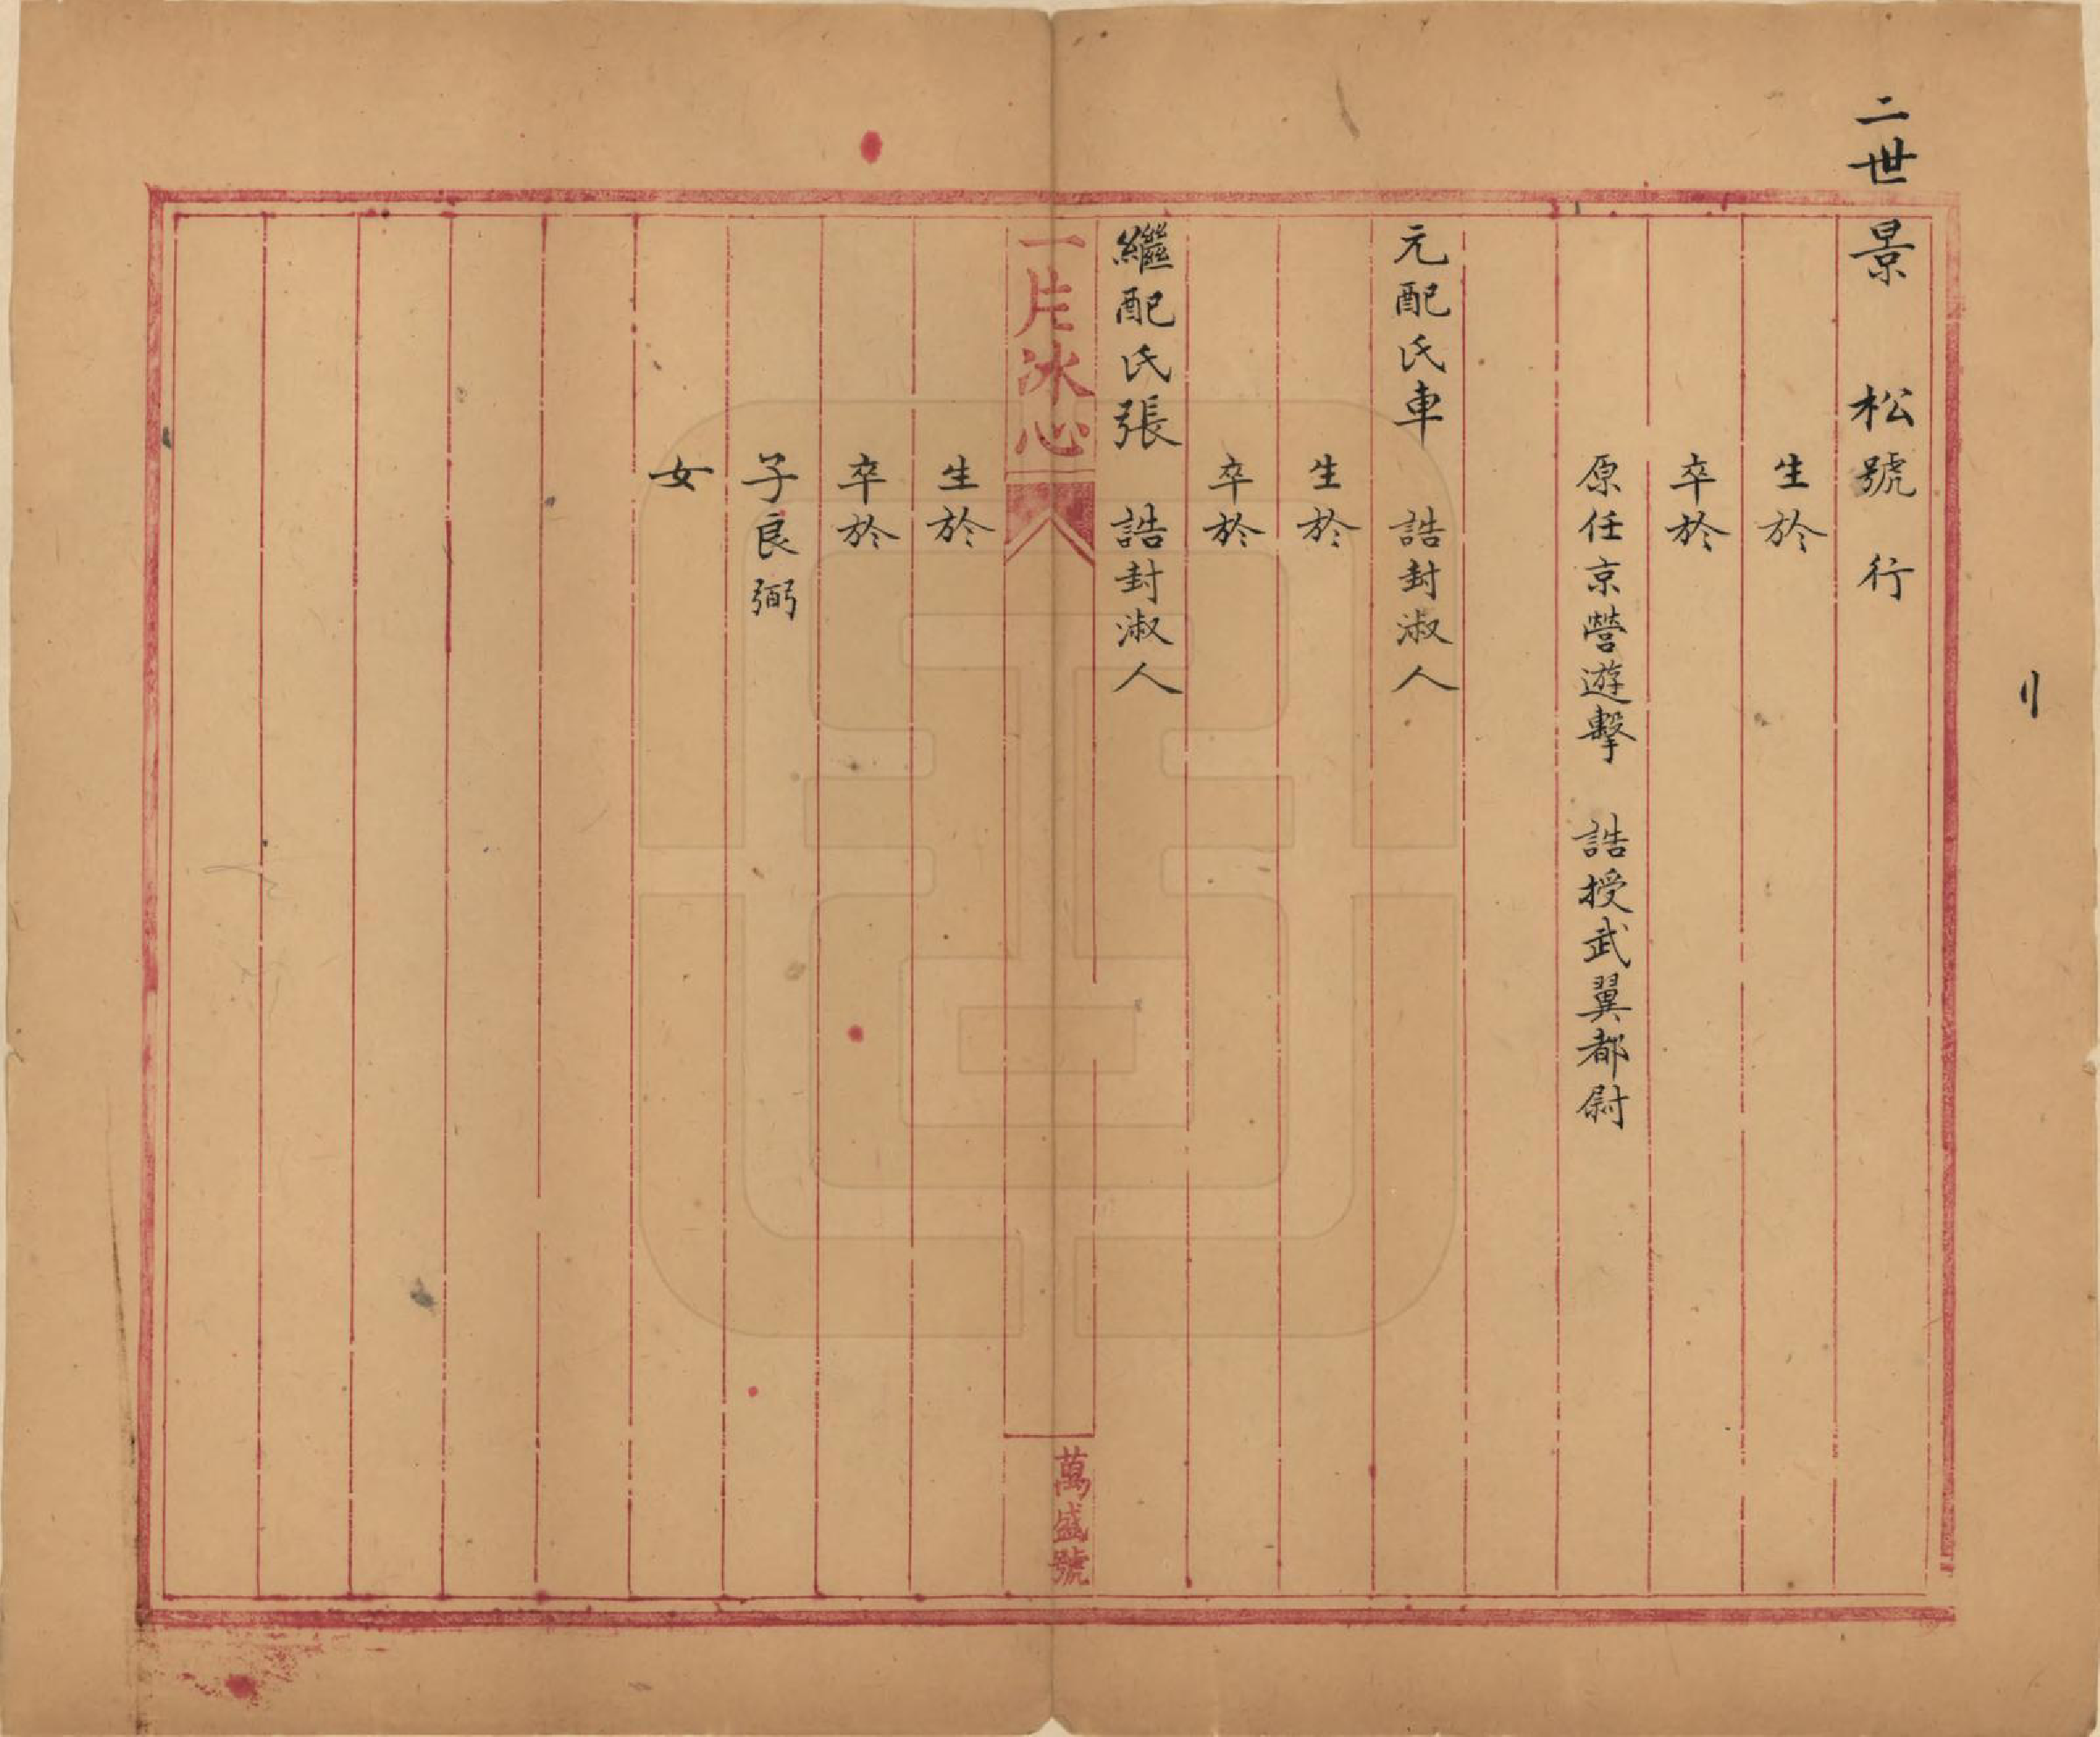 二世景　松號　行
生於
卒於
原任京營遊擊　誥授武翼都尉
元配氏車　誥封淑人
生於
卒於
繼配氏張　誥封淑人
一片冰心
萬盛號
生於
卒於
子良弼
女